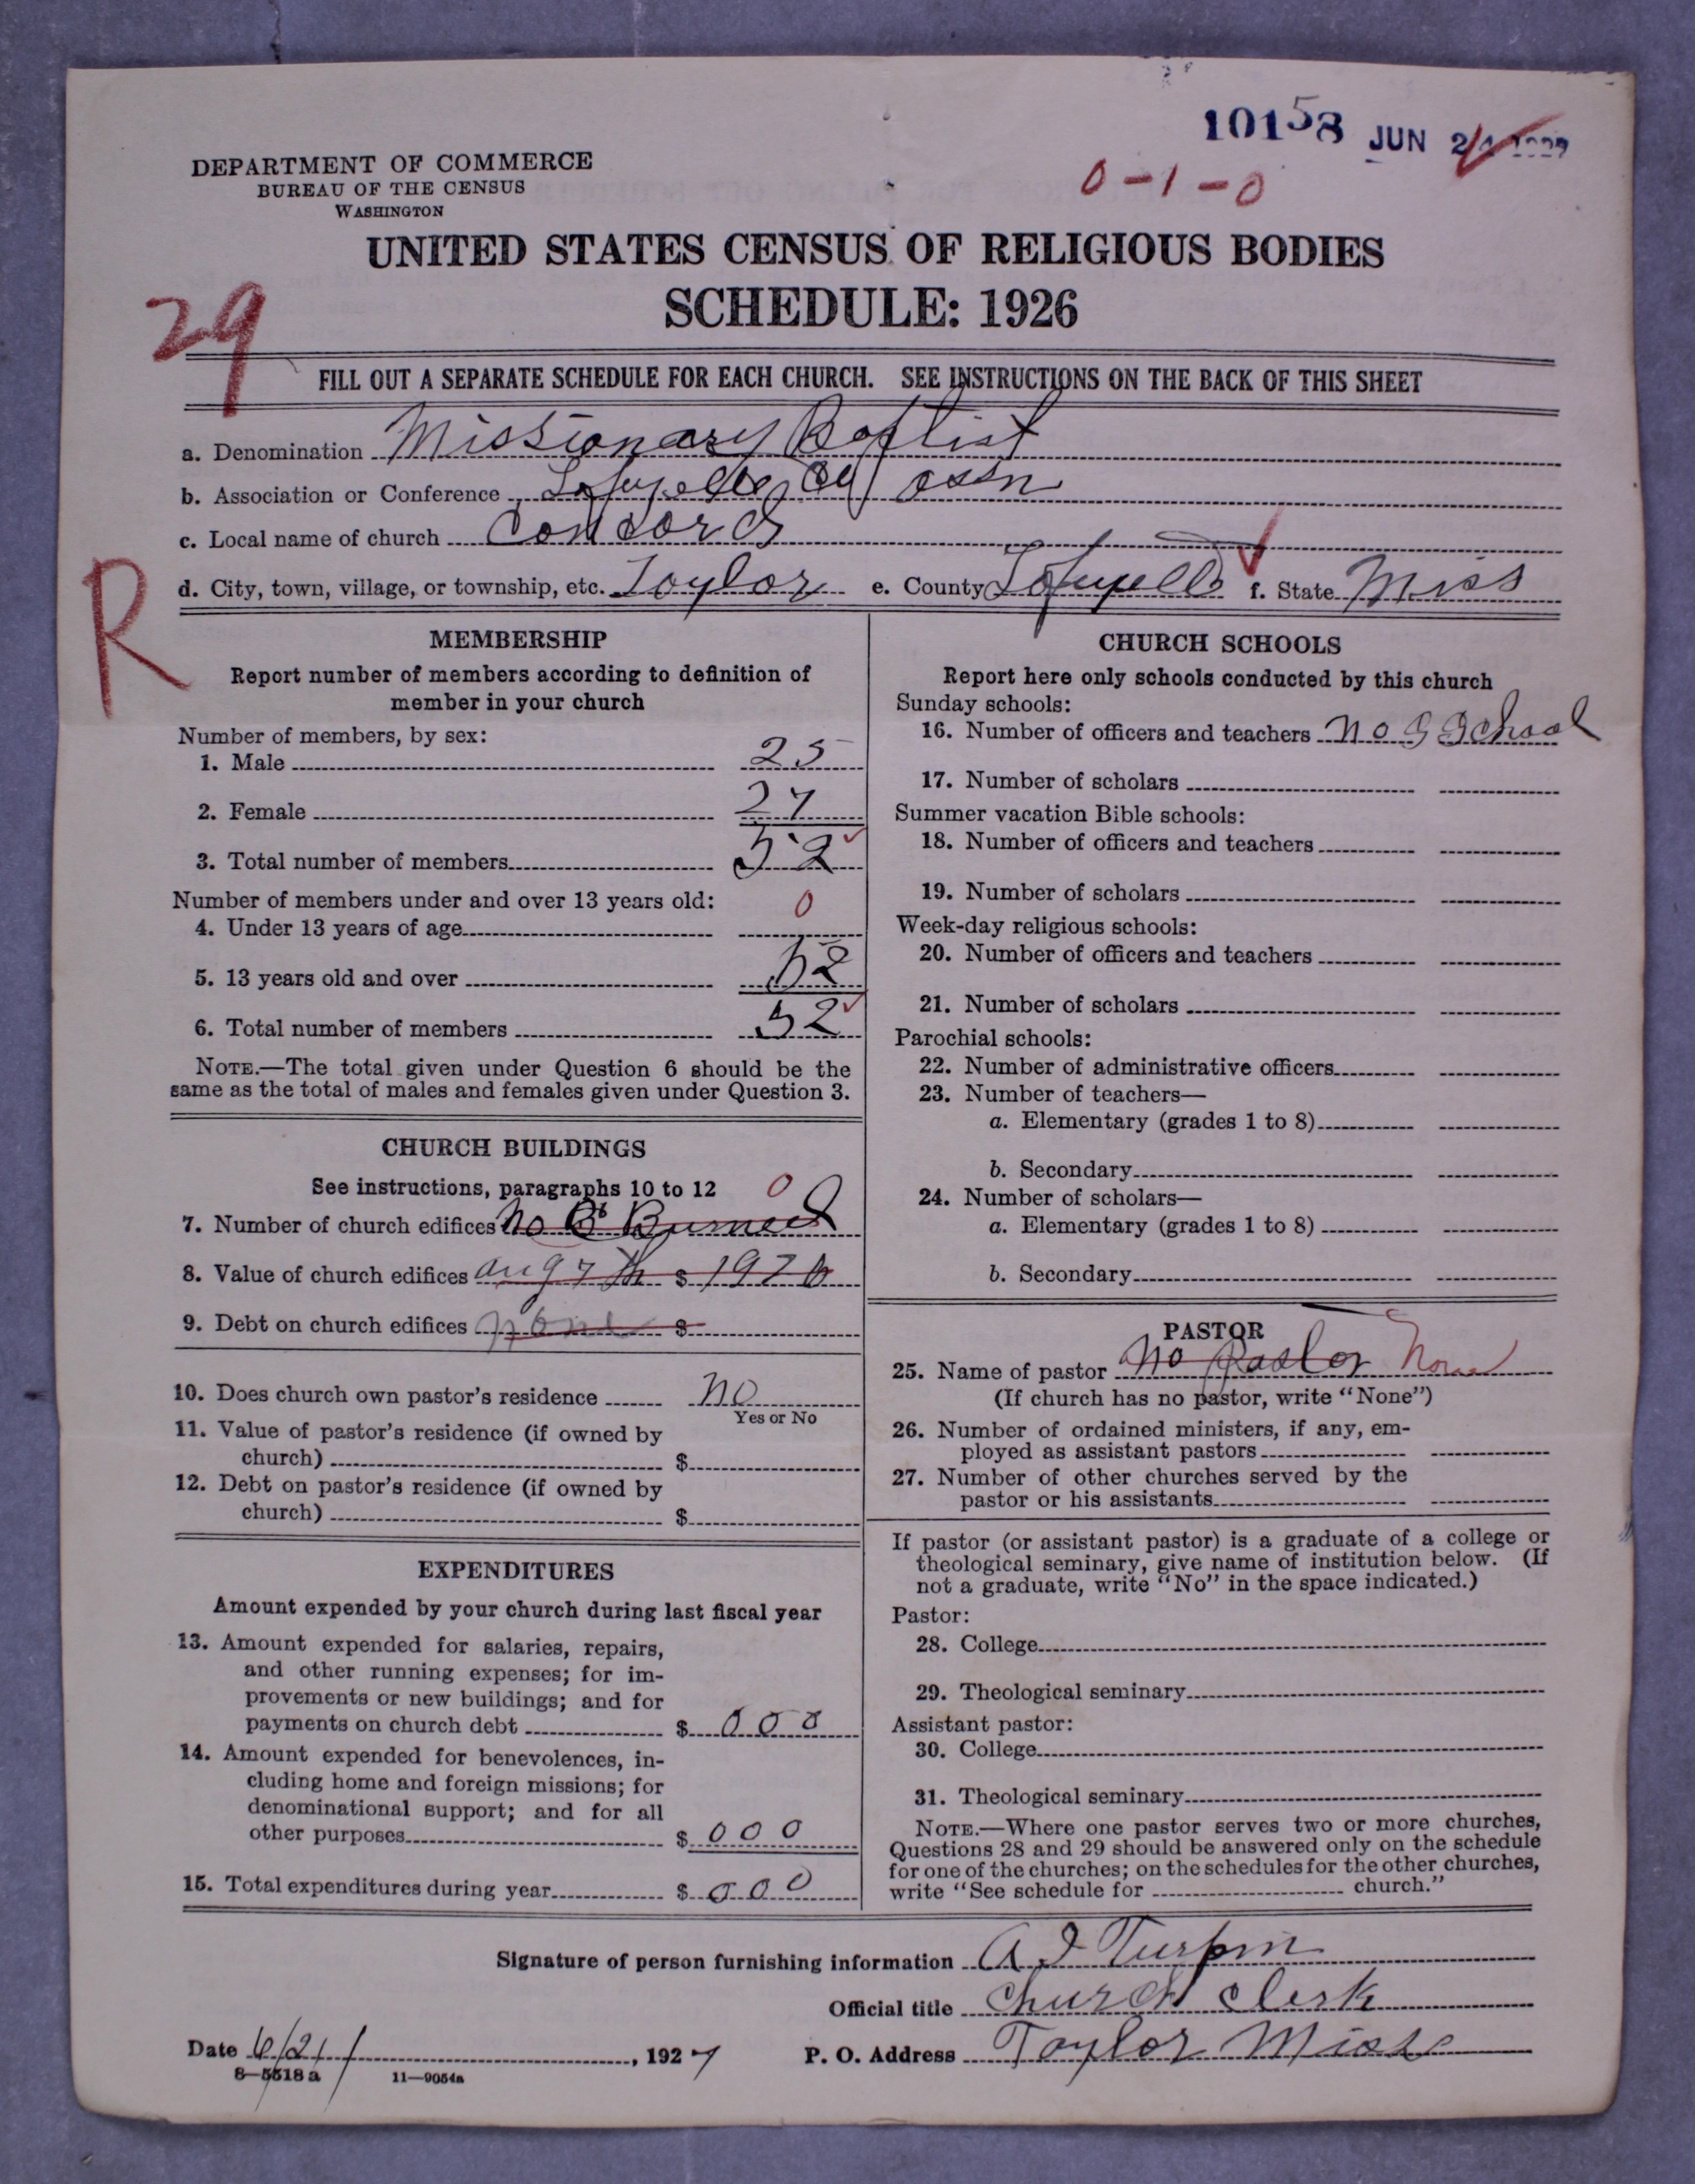 10158 JUN 24 1927
0-1-0
DEPARTMENT OF COMMERCE
BUREAU OF THE CENSUS
WASHINGTON
UNITED STATES CENSUS OF RELIGIOUS BODIES
SCHEDULE: 1926
29
FILL OUT A SEPARATE SCHEDULE FOR EACH CHURCH. SEE INSTRUCTIONS ON THE BACK OF THIS SHEET
a. Denomination Missionary Baptist
b. Association or Conference Lafayette Co assn
c. Local name of church Concord
d. City, town, village, or township, etc. Taylor e. County Lafayette f. State Miss
R
MEMBERSHIP
Report number of members according to definition of
member in your church
Number of members, by sex:
1. Male 25
2. Female 27
3. Total number of members 52
Number of members under and over 13 years old:
4. Under 13 years of age 0
5. 13 years old and over 52
6. Total number of members 52
NOTE.—The total given under Question 6 should be the
same as the total of males and females given under Question 3.
CHURCH BUILDINGS
See instructions, paragraphs 10 to 12
0
7. Number of church edifices No Burned
8. Value of church edifices aug 7th $ 1926
9. Debt on church edifices none $
10. Does church own pastor's residence no
Yes or No
11. Value of pastor's residence (if owned by
church) $
12. Debt on pastor's residence (if owned by
church) $
EXPENDITURES
Amount expended by your church during last fiscal year
13. Amount expended for salaries, repairs,
and other running expenses; for im-
provements or new buildings; and for
payments on church debt $ 000
14. Amount expended for benevolences, in-
cluding home and foreign missions; for
denominational support; and for all
other purposes $ 000
15. Total expenditures during year $ 000
CHURCH SCHOOLS
Report here only schools conducted by this church
Sunday schools:
16. Number of officers and teachers no S School
17. Number of scholars
Summer vacation Bible schools:
18. Number of officers and teachers
19. Number of scholars
Week-day religious schools:
20. Number of officers and teachers
21. Number of scholars
Parochial schools:
22. Number of administrative officers
23. Number of teachers—
a. Elementary (grades 1 to 8)
b. Secondary
24. Number of scholars—
a. Elementary (grades 1 to 8)
b. Secondary
PASTOR
25. Name of pastor no pastor None
(If church has no pastor, write "None")
26. Number of ordained ministers, if any, em-
ployed as assistant pastors
27. Number of other churches served by the
pastor or his assistants
If pastor (or assistant pastor) is a graduate of a college or
theological seminary, give name of institution below. (If
not a graduate, write "No" in the space indicated.)
Pastor:
28. College
29. Theological seminary
Assistant pastor:
30. College
31. Theological seminary
NOTE.—Where one pastor serves two or more churches,
Questions 28 and 29 should be answered only on the schedule
for one of the churches; on the schedules for the other churches,
write "See schedule for church."
Signature of person furnishing information A J Turpin
Official title Church Clerk
Date 6/21/, 1927 P. O. Address Taylor Miss
8—5518 a 11—9054a